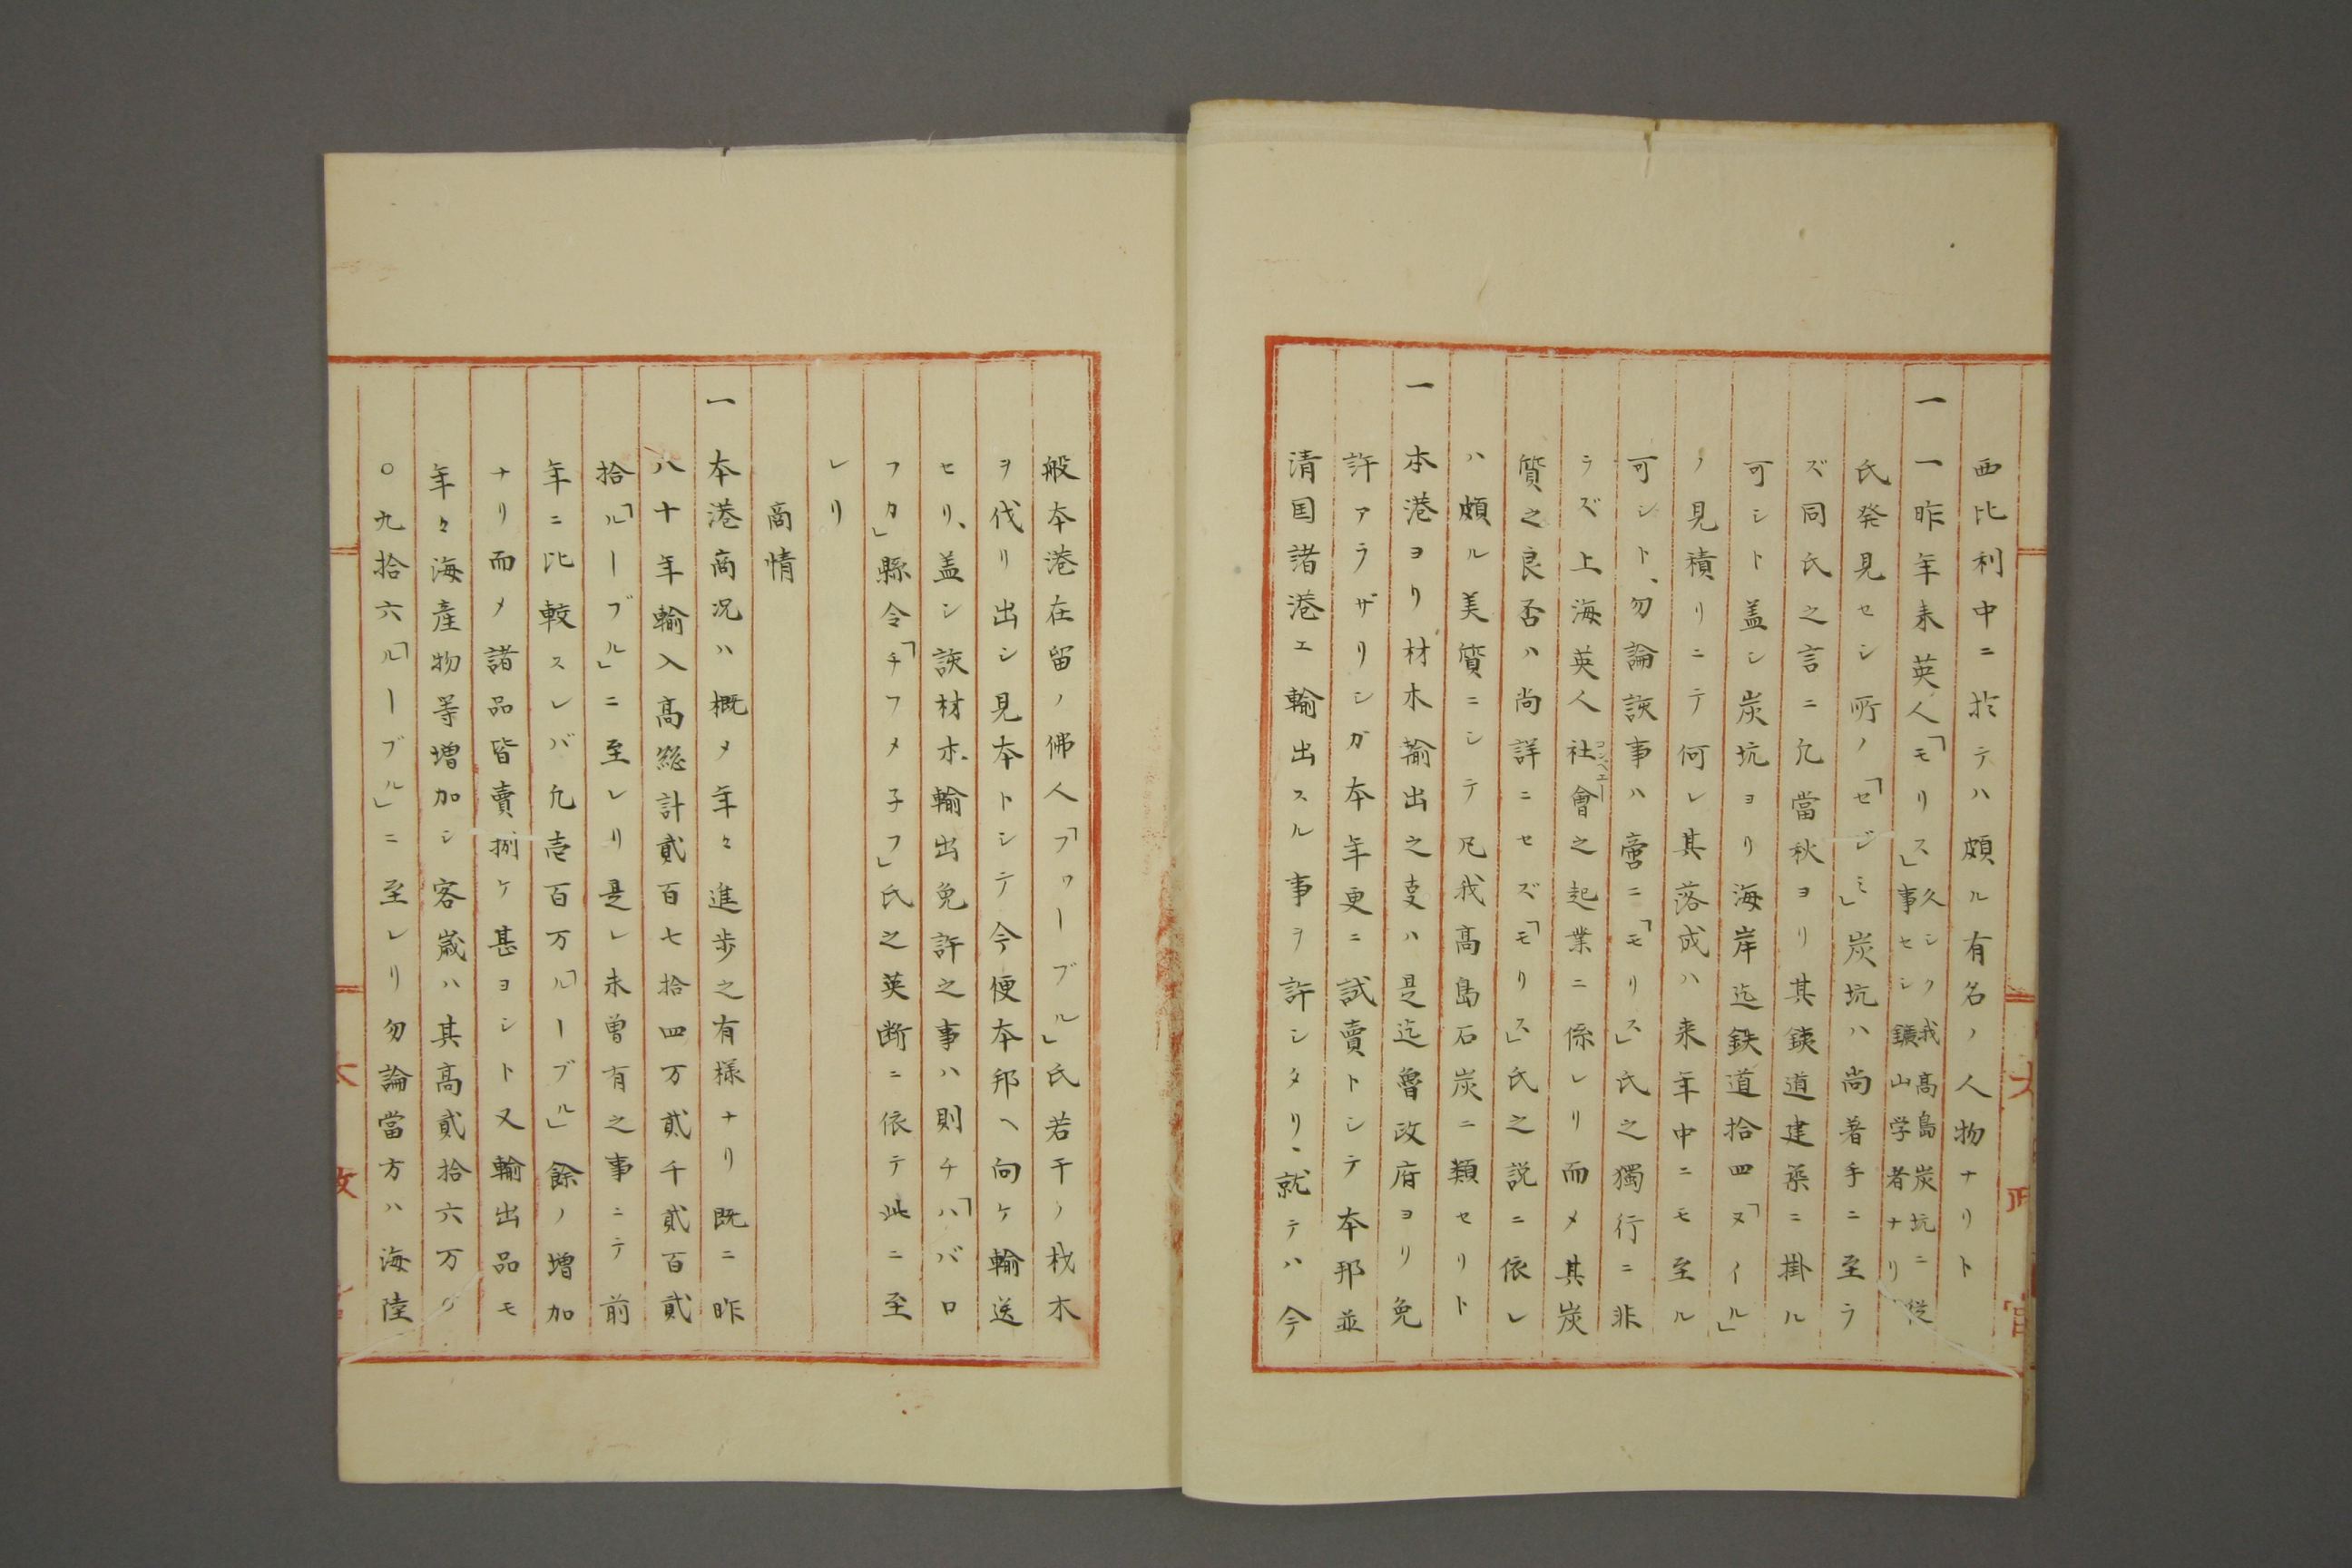 西比利中ニ於テハ頗ル有名ノ人物ナリト
一 一昨年来英人「モリス」久シク我高島炭坑ニ従
事セシ鑛山学者ナリ
氏発見セシ所ノ「セジミ」炭坑ハ尚着手ニ至ラ
ズ同氏之言ニ凢當秋ヨリ其銕道建築ニ掛ル
可シト盖シ炭坑ヨリ海岸迄鉄道拾四「ヌイル」
ノ見積リニテ何レ其落成ハ来年中ニモ至ル
可シト、勿論該事ハ啻ニ「モリス」氏之獨行ニ非
ラズ上海英人社會之起業ニ係レリ而メ其炭
コンペエー
質之良否ハ尚詳ニセズ「モリス」氏之説ニ依レ
ハ頗ル美質ニシテ凢我高島石炭ニ類セリト
一 本港ヨリ材木輸出之叓ハ是迄魯政府ヨリ免
許アラザリシガ本年更ニ試賣トシテ本邦並
清国諸港エ輸出スル事ヲ許シタリ、就テハ今
般本港在留ノ佛人「フワーブル」氏若干ノ材木
ヲ伐リ出シ見本トシテ今便本邦ヘ向ケ輸送
セリ、盖シ該材木輸出免許之事ハ則チ「ハバロ
フカ」縣令「チフメ子フ」氏之英断ニ依テ此ニ至
レリ
商情
一 本港商况ハ概メ年々進歩之有様ナリ既ニ昨
八十年輸入高総計貳百七拾四万貳千貳百貳
拾「ルーブル」ニ至レリ是レ未曽有之事ニテ前
年ニ比較スレバ凢壱百万「ルーブル」餘ノ増加
ナリ而メ諸品皆賣捌ケ甚ヨシト又輸出品モ
年々海産物等増加シ客歳ハ其高貳拾六万〇
〇九拾六「ルーブル」ニ至レリ勿論當方ハ海陸
太政官